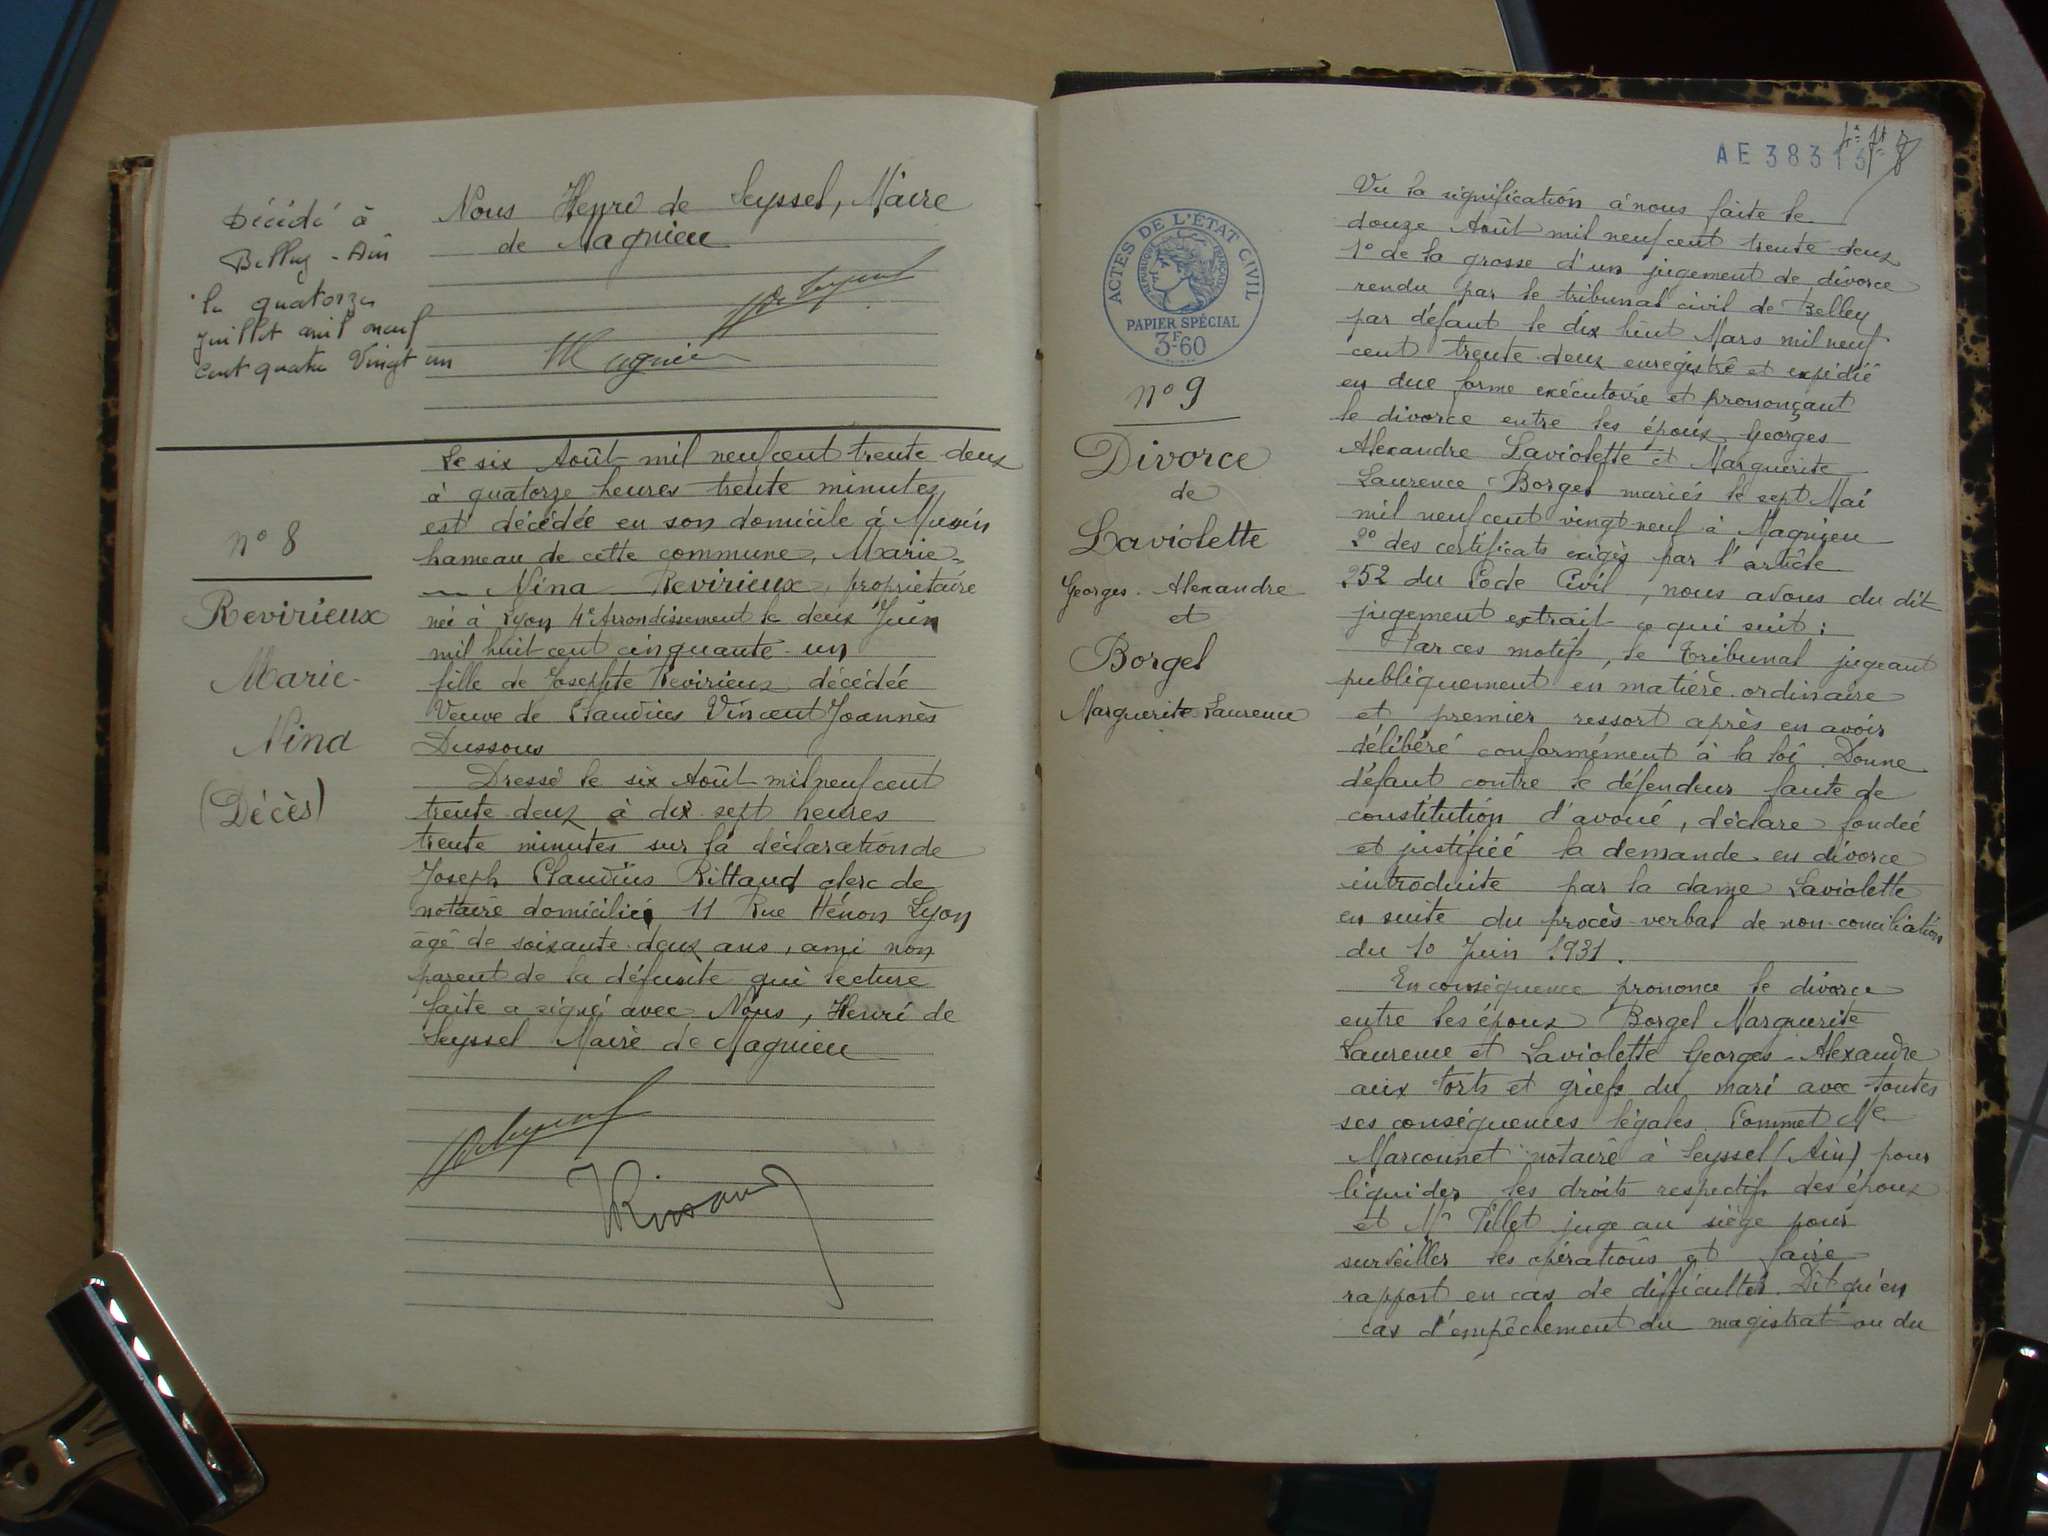 Décédé à
Belley - Ain
le quatorze
juillet mil neuf
cent quatre Vingt un
Nous Henri de Seyssel, Maire
de Magnieu
nº 8
Revirieux
Marie-
Nina
(Décès)
Le six Août mil neuf cent trente deux
à quatorze heures trente minutes
est décédée en son domicile à Musin
hameau de cette commune, Marie-
Nina Revirieux, propriétaire
née à Lyon 4e Arrondissement le deux Juin
mil huit cent cinquante un
fille de Josephte Revirieux décédée
Veuve de Claudius Vincent Joannès
Dussous
Dressé le six Août mil neuf cent
trente deux à dix sept heures
trente minutes sur la déclaration de
Joseph Claudius Rittaud clerc de
notaire domicilié 11 Rue Hénon Lyon
âgé de soixante deux ans, ami non
parent de la défunte qui lecture
faite a signé avec Nous, Henri de
Seyssel Maire de Magnieu
AE 383
ACTES DE L'ÉTAT CIVIL
RÉPUBLIQUE FRANÇAISE
PAPIER SPÉCIAL
3F60
nº 9
Divorce
de
Laviolette
Georges - Alexandre
et
Borgel
Marguerite Laurence
Vu la signification à nous faite le
douze Août mil neuf cent trente deux
1º de la grosse d'un jugement de divorce
rendu par le tribunal civil de Belley
par défaut le dix huit Mars mil neuf
cent trente deux enregistré et expédié
en due forme exécutoire et prononçant
le divorce entre les époux Georges
Alexandre Laviolette et Marguerite
Laurence Borgel mariés le sept Mai
mil neuf cent vingt neuf à Magnieu
2º des certificats exigés par l'article
252 du Code Civil, nous avons du dit
jugement extrait ce qui suit :
Par ces motifs, le Tribunal jugeant
publiquement en matière ordinaire
et premier ressort après en avoir
délibéré conformément à la loi. Donne
défaut contre le défendeur faute de
constitution d'avoué, déclare fondée
et justifiée la demande en divorce
introduite par la dame Laviolette
en suite du procès-verbal de non-conciliation
du 10 Juin 1931.
En conséquence prononce le divorce
entre les époux Borgel Marguerite
Laurence et Laviolette Georges-Alexandre
aux torts et griefs du mari avec toutes
ses conséquences légales. Commet Me
Marcounet notaire à Seyssel (Ain) pour
liquider les droits respectifs des époux
et Mr Pillet juge au siège pour
surveiller les opérations et faire
rapport en cas de difficultés. Dit qu'en
cas d'empêchement du magistrat ou du